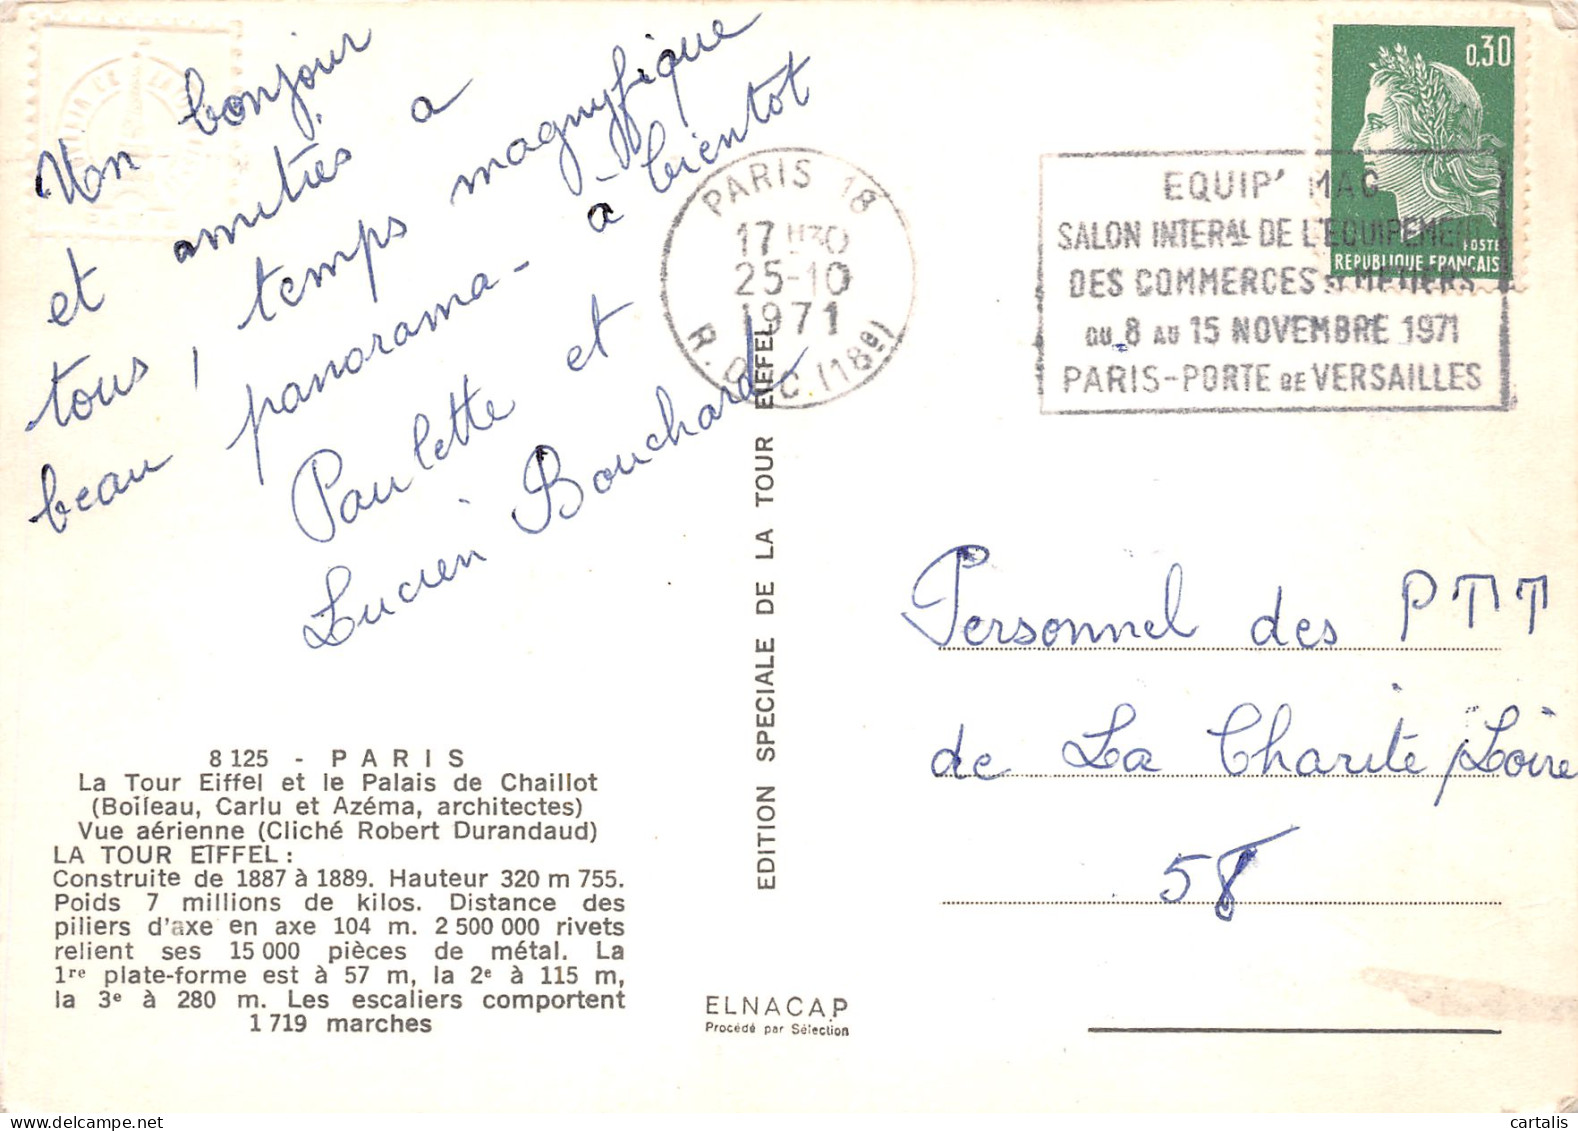 Mon bonjour
et amitiés a
tous, temps magnyfique
beau panorama - à bientot
Paulette et
Lucien Bouchard
8 125 - PARIS
La Tour Eiffel et le Palais de Chaillot
(Boileau, Carlu et Azéma, architectes)
Vue aérienne (Cliché Robert Durandaud)
LA TOUR EIFFEL :
Construite de 1887 à 1889. Hauteur 320 m 755.
Poids 7 millions de kilos. Distance des
piliers d'axe en axe 104 m. 2 500 000 rivets
relient ses 15 000 pièces de métal. La
1re plate-forme est à 57 m, la 2e à 115 m,
la 3e à 280 m. Les escaliers comportent
1 719 marches
EDITION SPECIALE DE LA TOUR EIFFEL
ELNACAP
Procédé par Sélection
PARIS 18
17 H30
25-10
1971
R. DUC (18e)
EQUIP' MAG
SALON INTERAL DE L'EQUIPEMENT
DES COMMERCES ET METIERS
DU 8 AU 15 NOVEMBRE 1971
PARIS-PORTE DE VERSAILLES
0,30
POSTES
REPUBLIQUE FRANÇAISE
Personnel des PTT
de La Charité /Loire
58
cartalis
delcampe.net